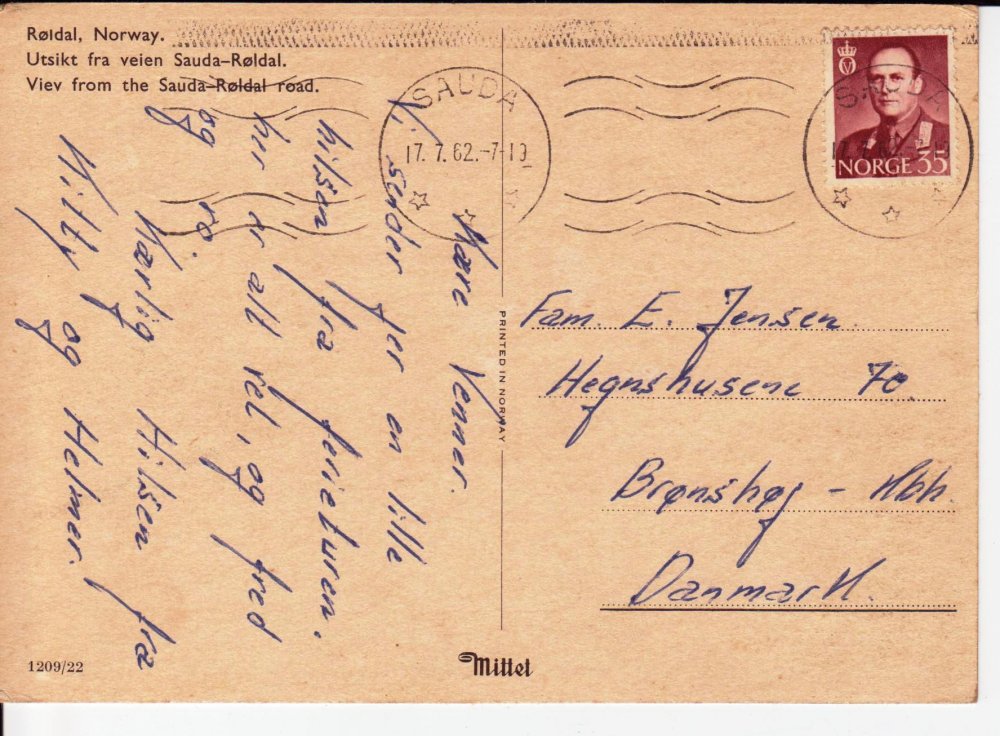 Røldal, Norway.
Utsikt fra veien Sauda-Røldal.
Viev from the Sauda-Røldal road.
SAUDA
17. 7. 62.-7-19
SAUDA
NORGE 35
Kære Venner.
Vi sender jer en lille
hilsen fra ferieturen.
her er alt vel, og fred
og ro.
Kærlig Hilsen fra
Kitty og Helmer.
PRINTED IN NORWAY
Fam. E. Jensen.
Hegnshusene 70.
Brønshøj - Kbh.
Danmark.
1209/22
Mittet